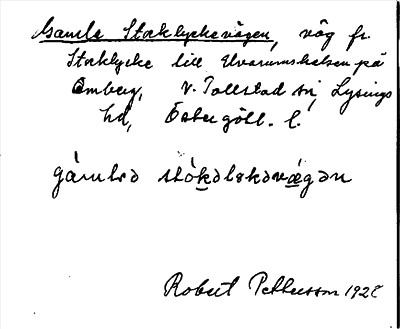 Gamla Stocklyckevägen, väg fr.
Stocklycke till Alvarums på
Omberg, V. Tollstad sn, Lysings
hd, Östergötl. l.
gámlɘ stókɘlɘkɘvǽgɘn
Robert Pettersson 192